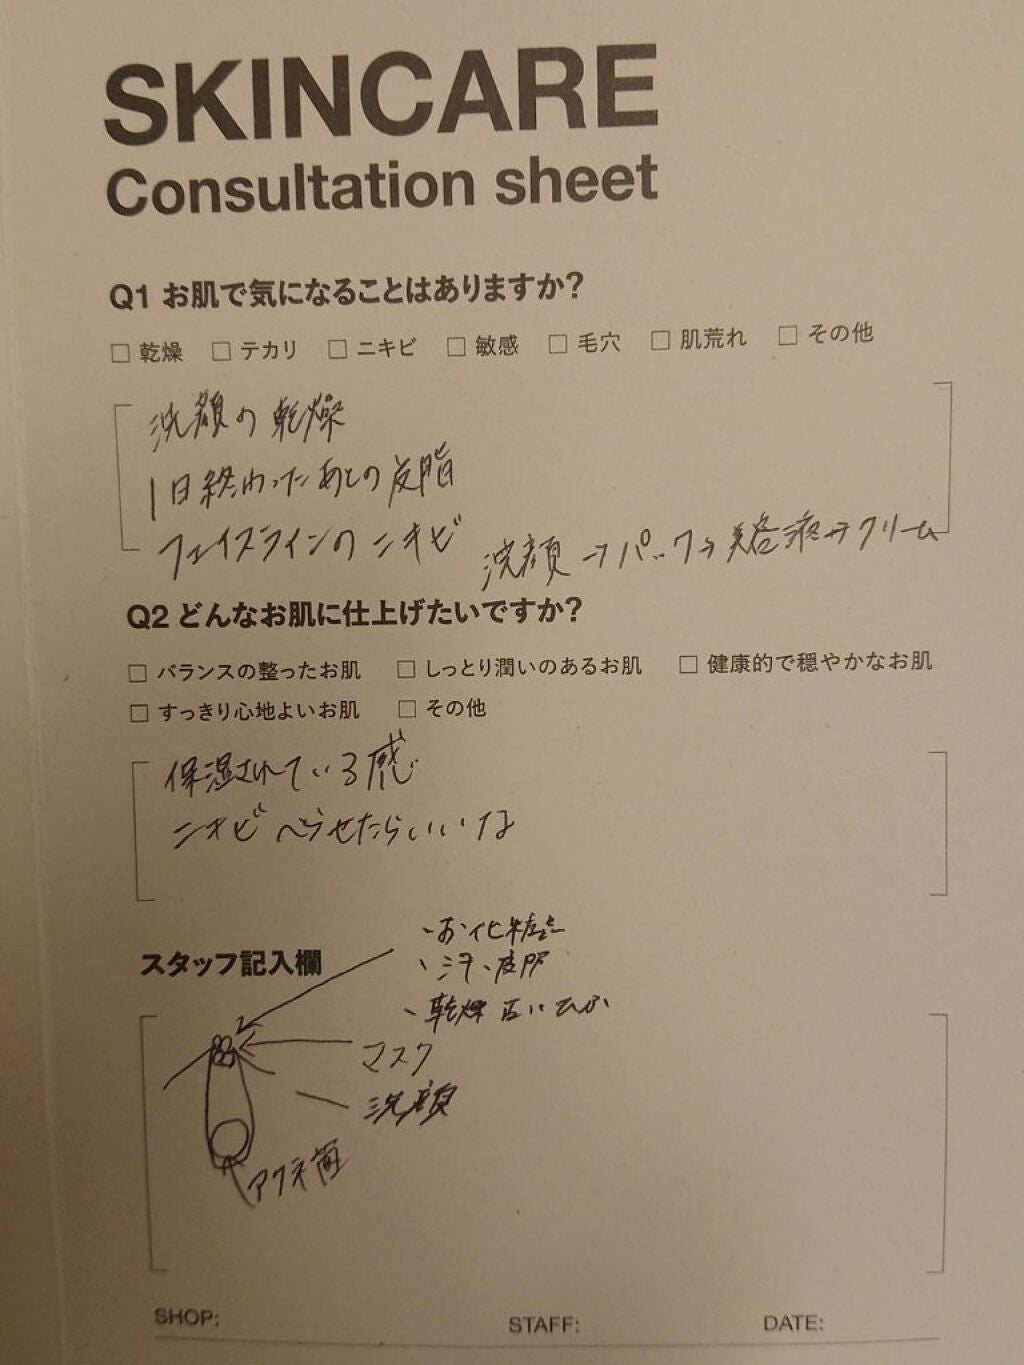 SKINCARE
Consultation sheet
Q1 お肌で気になることはありますか?
□ 乾燥 □ テカリ □ ニキビ □ 敏感 □ 毛穴 □ 肌荒れ □ その他
洗顔の乾燥
1日終わったあとの皮脂
フェイスラインのニキビ
洗顔→パック→美容液→クリーム
Q2 どんなお肌に仕上げたいですか?
□ バランスの整ったお肌 □ しっとり潤いのあるお肌 □ 健康的で穏やかなお肌
□ すっきり心地よいお肌 □ その他
保湿されている感じ
ニキビ へらせたらいいな
スタッフ記入欄
・お化粧
・汗、皮脂
・乾燥 古い
マスク
洗顔
アクネ菌
SHOP: STAFF: DATE: